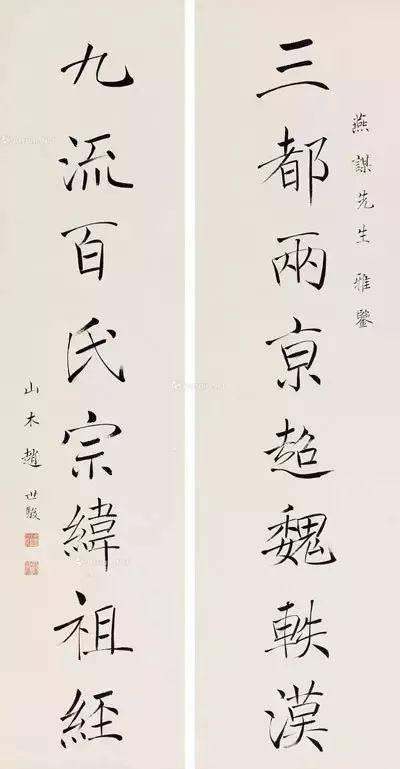 燕謀先生雅鑒
三都兩京超魏軼漢
九流百氏宗緯祖經
山木趙世駿